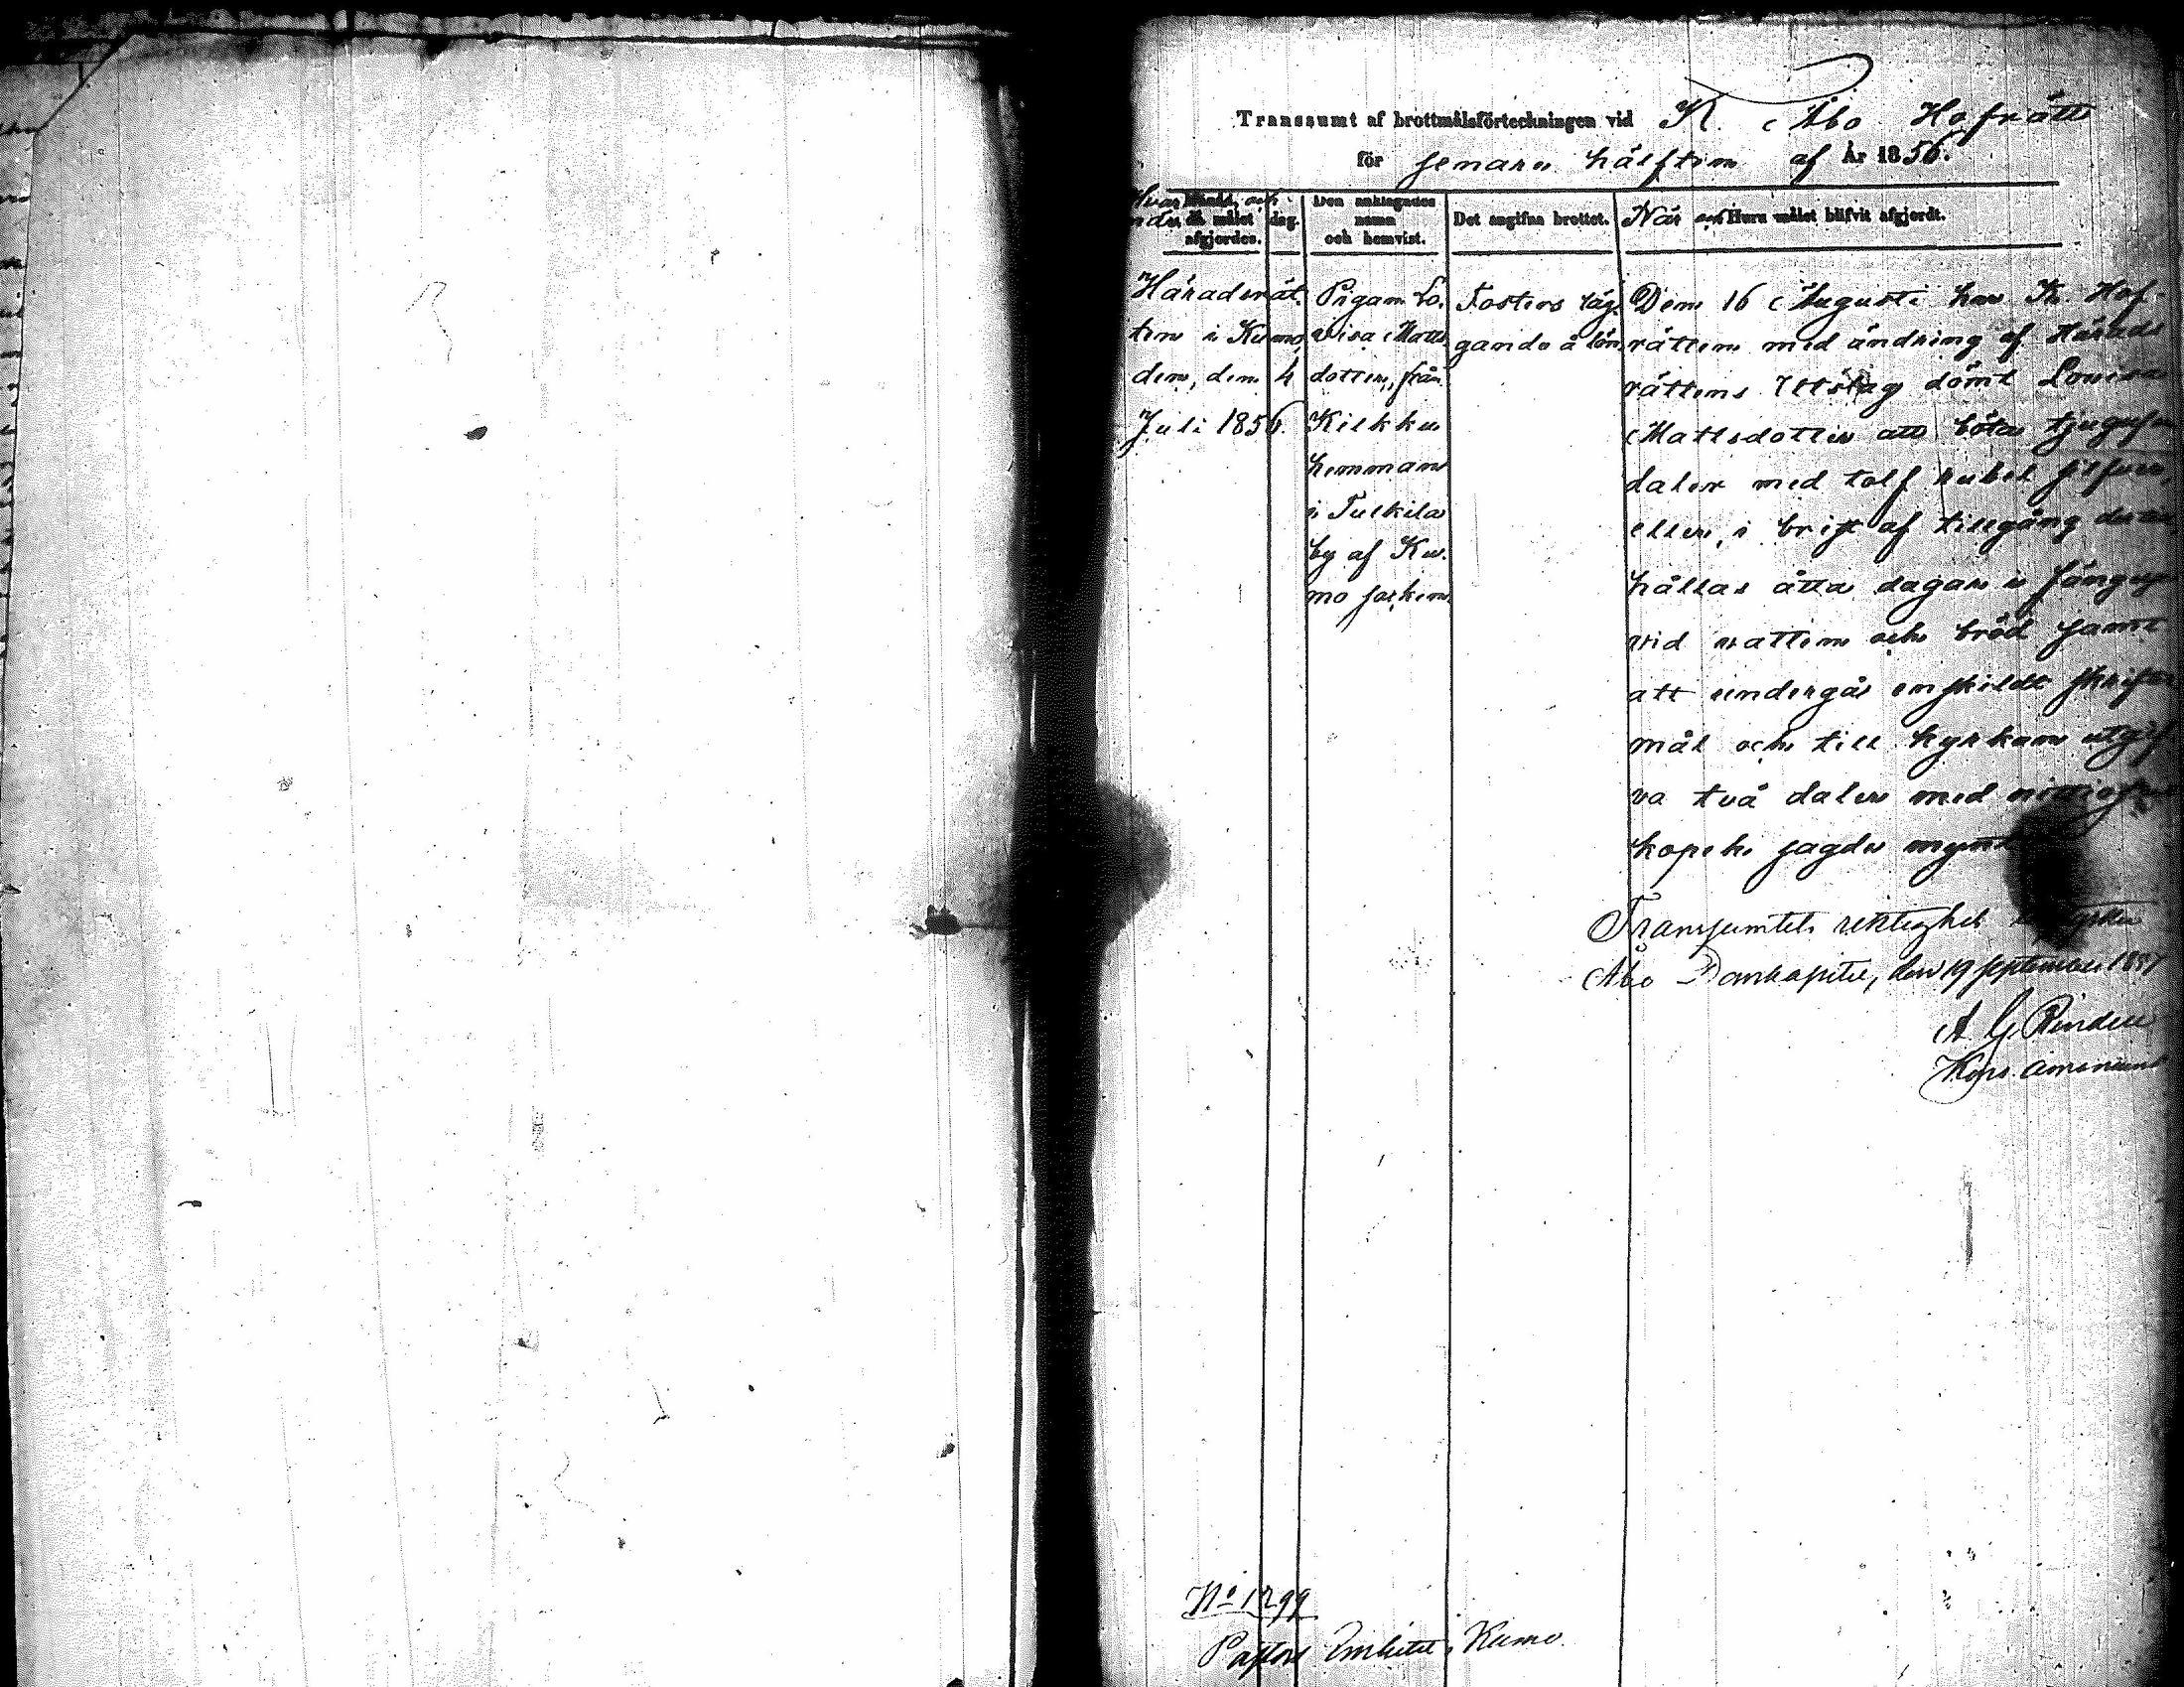 Transsumt af brottmålsförteckningen vid K. Åbo Hofrätt
för senare hälften af År 1856.
Hvar och
då målet dag.
afgjordes.
Den anklagades
namn
och hemvist.
Det angifna brottet.
När och Huru målet blifvit afgjordt.
Häradsrät
ten i Kumo,
den 4
Juli 1856.
Pigan Lo.
visa Matts
dotter, från
Kilkku
hemman
i Tulkila
by af Ku.
mo socken.
Fosters läg.
gande å lön
Den 16 Augusti har K. Hof-
rätten med ändring af Härads
rättens Utslag dömt Lovisa
Mattsdotter att böta
daler med tolf rubel silfver,
eller, i brist af tillgång
hållas åtta dagar i fängelse
vid vatten och bröd samt
att undergå enskildt skrifter
mål och till kyrkan utgif
va två daler med
kopek sagde mynt
Transsumtets riktighet
Åbo Domkapitel, den 19 September 1857
A G
No 1299
Pastors Embetet i Kumo.